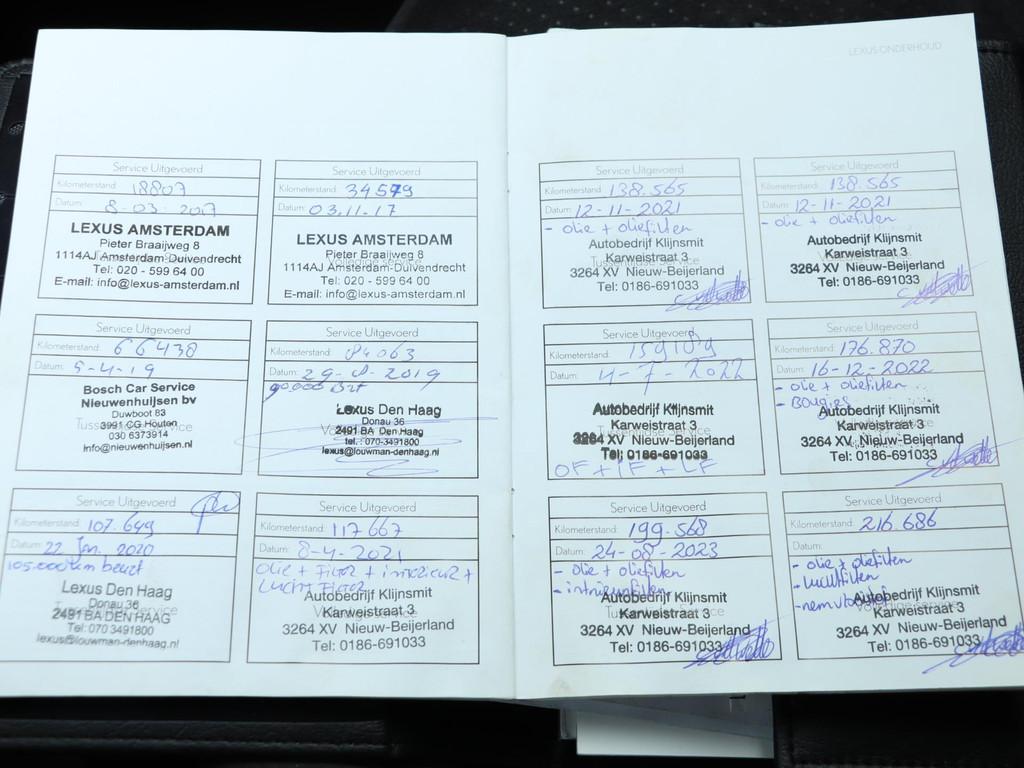 LEXUS ONDERHOUD
Service Uitgevoerd
Kilometerstand: 18807
Datum: 8-03 2017
LEXUS AMSTERDAM
Pieter Braaijweg 8
1114AJ Amsterdam-Duivendrecht
Tel: 020 - 599 64 00
E-mail: info@lexus-amsterdam.nl
Service Uitgevoerd
Kilometerstand: 34579
Datum: 03.11.17
LEXUS AMSTERDAM
Pieter Braaijweg 8
1114AJ Amsterdam-Duivendrecht
Tel: 020 - 599 64 00
E-mail: info@lexus-amsterdam.nl
Service Uitgevoerd
Kilometerstand: 66438
Datum: 5-4-19
Bosch Car Service
Nieuwenhuijsen bv
Duwboot 83
3991 CG Houten
030 6373914
info@nieuwenhuijsen.nl
Service Uitgevoerd
Kilometerstand: 84063
Datum: 29-8-2019
90.000 Brt
Lexus Den Haag
Donau 36
2491 BA Den Haag
tel.: 070-3491800
lexus@louwman-denhaag.nl
Service Uitgevoerd
Kilometerstand: 107.649
Datum: 22 Jan. 2020
105.000 km beurt
Lexus Den Haag
Donau 36
2491 BA DEN HAAG
Tel: 070 3491800
lexus@louwman-denhaag.nl
Service Uitgevoerd
Kilometerstand: 117667
Datum: 8-4-2021
Olie + Filter + interieur +
Lucht Filter
Autobedrijf Klijnsmit
Karweistraat 3
3264 XV Nieuw-Beijerland
Tel: 0186-691033
Service Uitgevoerd
Kilometerstand: 138.565
Datum: 12-11-2021
- olie + oliefilter
Autobedrijf Klijnsmit
Karweistraat 3
Tussentijdse Service
3264 XV Nieuw-Beijerland
Tel: 0186-691033
Service Uitgevoerd
Kilometerstand: 138.565
Datum: 12-11-2021
- olie + oliefilter
Autobedrijf Klijnsmit
Karweistraat 3
3264 XV Nieuw-Beijerland
Tel: 0186-691033
Service Uitgevoerd
Kilometerstand:
Datum: 4-7-2022
Autobedrijf Klijnsmit
Karweistraat 3
3264 XV Nieuw-Beijerland
Tel: 0186-691033
OF + IF + LF
Service Uitgevoerd
Kilometerstand: 176.870
Datum: 16-12-2022
- olie + oliefilter
- Bougies
Autobedrijf Klijnsmit
Karweistraat 3
3264 XV Nieuw-Beijerland
Tel: 0186-691033
Service Uitgevoerd
Kilometerstand: 199.568
Datum: 24-08-2023
- olie + oliefilter
- intrieurfilter
Autobedrijf Klijnsmit
Karweistraat 3
3264 XV Nieuw-Beijerland
Tel: 0186-691033
Service Uitgevoerd
Kilometerstand: 216.686
Datum:
- olie + oliefilter
- luchtfilter
Autobedrijf Klijnsmit
Karweistraat 3
3264 XV Nieuw-Beijerland
Tel: 0186-691033